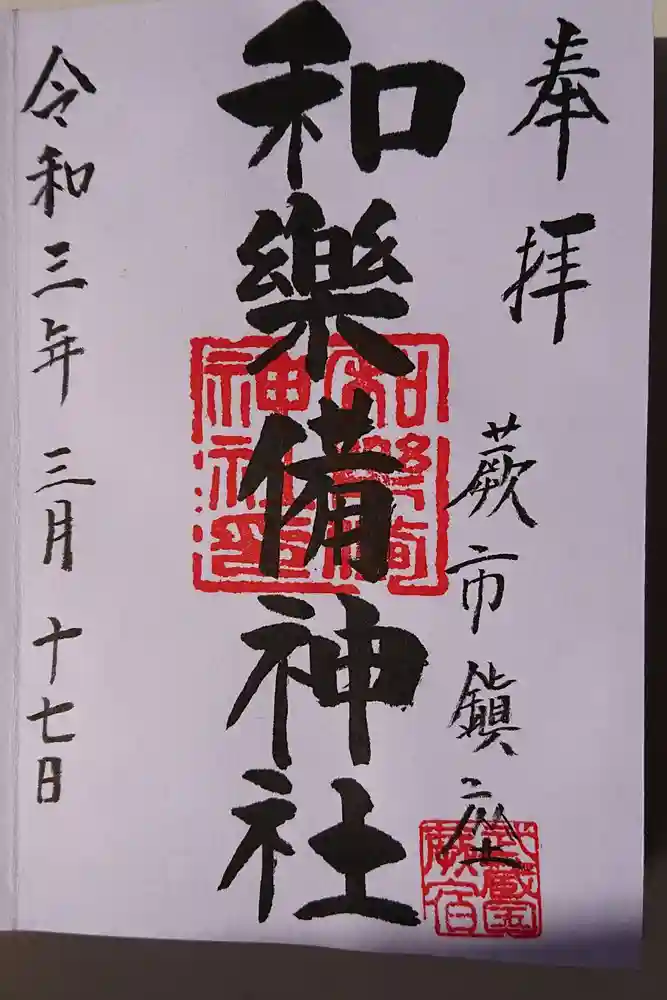 奉拝
蕨市鎮座
和樂備神社
和樂備
神社印
武蔵国
蕨宿
令和三年三月十七日